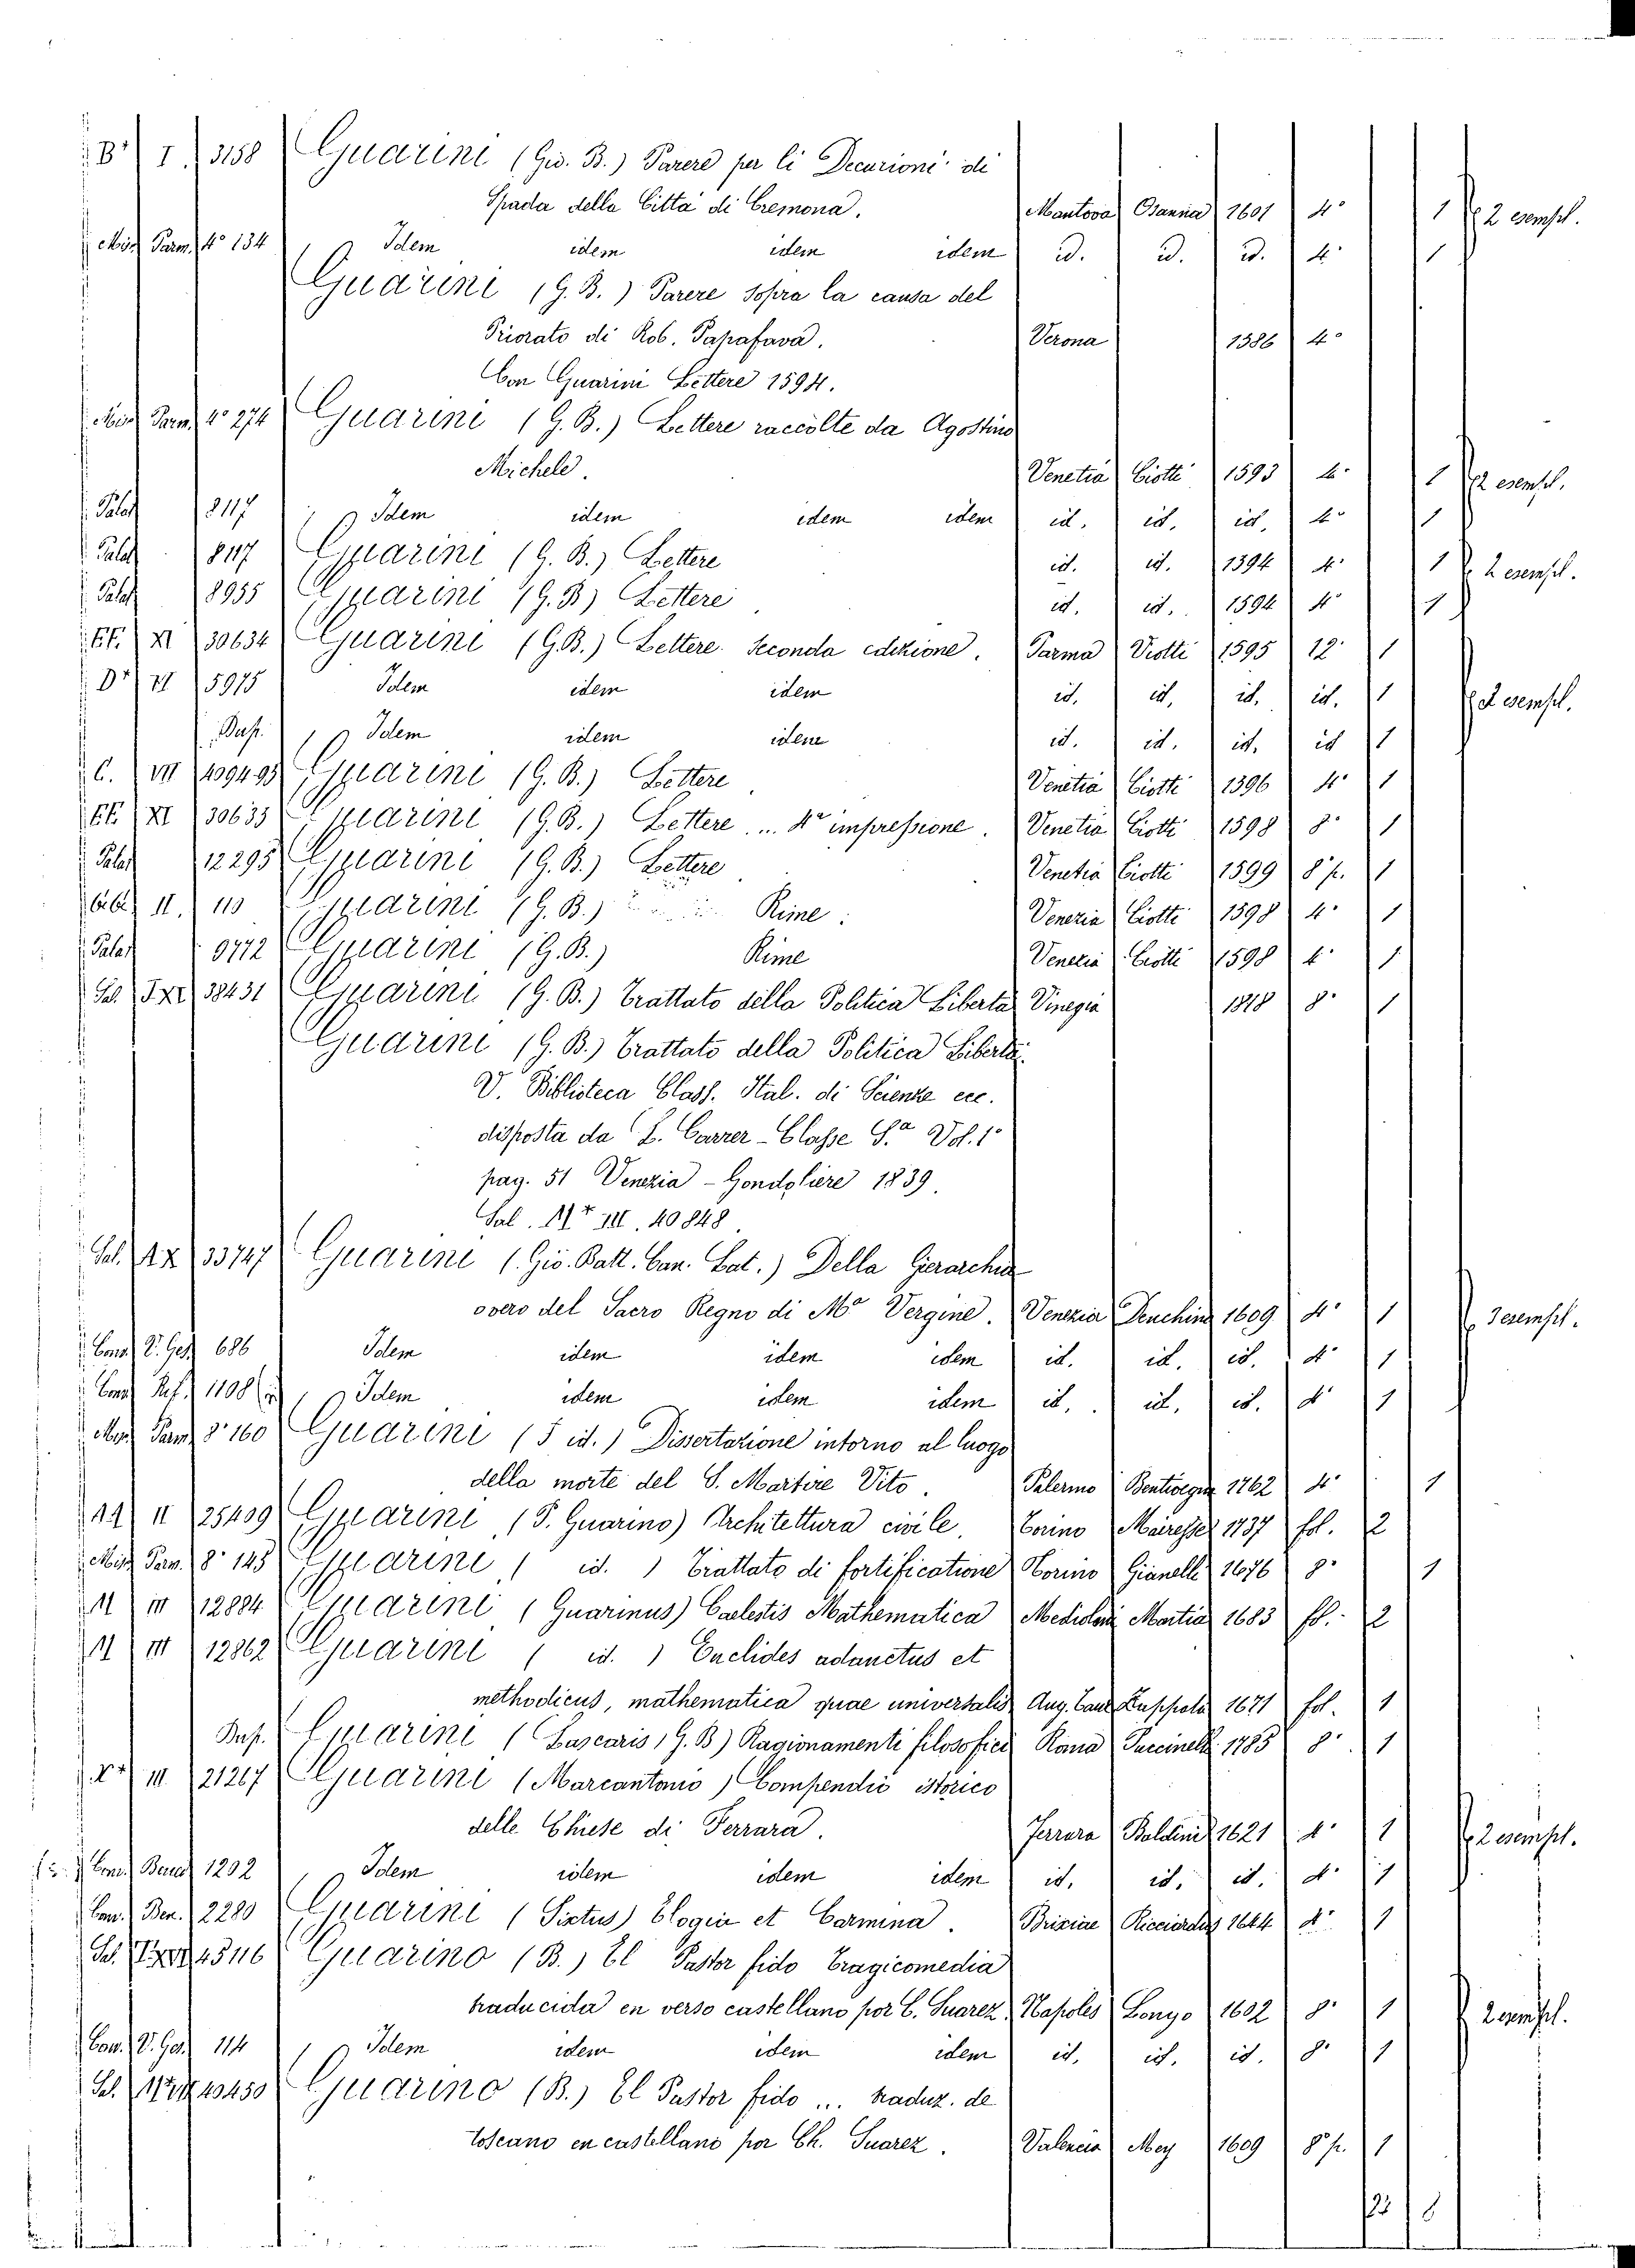 B+ I. 3158 Guarini (Gio. B.) Parere per li Decurioni di
Spada della Città di Cremona. Mantova Osanna 1601 4° 1 2 esempl.
Misc. Parm. 4° 134 Idem idem idem idem id. id. id. 4° 1
Guarini (G. B.) Parere sopra la causa del
Priorato di Rob. Papafava. Verona 1586 4°
Con Guarini Lettere 1594.
Misc. Parm. 4° 274 Guarini (G. B.) Lettere raccolte da Agostino
Michele. Venetia Ciotti 1593 4° 1 2 esempl.
Palat 8117 Idem idem idem idem id. id. id. 4° 1
Palat 8117 Guarini (G. B.) Lettere id. id. 1594 4° 1 2 esempl.
Palat 8955 Guarini (G. B.) Lettere id. id. 1594 4° 1
EE. XI 30634 Guarini (G.B.) Lettere. Seconda edizione. Parma Viotti 1595 12° 1
D+ VI 5975 Idem idem idem id. id. id. id. 1 2 esempl.
Idem idem idem id. id. id. id 1
C. VIII Guarini (G. B.) Lettere Venetia Ciotti 1596 4° 1
EE. XI 30635 Guarini (G.B.) Lettere ... 4a impressione. Venetia Ciotti 1598 8° 1
Palat 12295 Guarini (G.B.) Lettere Venetia Ciotti 1599 8° p. 1
II. 110 Guarini (G. B.) Rime. Venezia Ciotti 1598 4° 1
Palat 9772 Guarini (G.B.) Rime Venezia Ciotti 1598 4° 1
Sal. 38431 Guarini (G. B.) Trattato della Politica Libertà Vinegia 1818 8° 1
Guarini (G. B.) Trattato della Politica Libertà.
V. Biblioteca Class. Ital. di Scienze ecc.
disposta da L. Carrer - Classe S.a Vol. 1°
pag. 51 Venezia - Gondoliere 1839.
Sal. M+ III. 40848
Sal. 33747 Guarini (Gio. Batt. Can. Lat.) Della Gierarchia
overo del Sacro Regno di Ma Vergine. Venezia Deuchino 1609 4° 1 3 esempl.
Cons. V. Ges. 686 Idem idem idem idem id. id. id. 4° 1
Cons. Rif. 1108 Idem idem idem idem id. id. id. 4° 1
Misc. Parm. 8° 160 Guarini (J id.) Dissertazione intorno al luogo
della morte del S. Martire Vito. Palermo Bentivegna 1762 4° 1
II 25409 Guarini (P. Guarino) Architettura civile. Torino Mairesse 1737 fol. 2
Misc. Parm. 8° 145 Guarini ( id. ) Trattato di fortificatione Torino Gianelli 1676 8° 1
M III 12884 Guarini (Guarinus) Caelestis Mathematica Mediolani Martia 1683 fol. 2
M III 12862 Guarini ( id. ) Euclides adauctus et
methodicus, mathematica quae universalis Aug. Taur. Zappata 1671 fol. 1
Guarini (Lascaris, G. B) Ragionamenti filosofici Roma Puccinelli 1785 8° 1
X+ III. 21267 Guarini (Marcantonio) Compendio istorico
delle Chiese di Ferrara. Ferrara Baldini 1621 4° 1 2 esempl.
Cons. Bened. 1292 Idem idem idem idem id. id. id. 4° 1
Con. Ben. 2280 Guarini (Sixtus) Elogia et Carmina. Brixiae Ricciardus 1644 4° 1
Sal. 43116 Guarino (B.) El Pastor fido Tragicomedia
traducida en verso castellano por C. Suarez. Napoles Longo 1602 8° 1 2 esempl.
Con. V. Ges. 114 Idem idem idem idem id. id. id. 8° 1
Sal. 40450 Guarino (B.) El Pastor fido ... traduz. de
toscano en castellano por Ch. Suarez. Valencia Mey 1609 8° p. 1
8